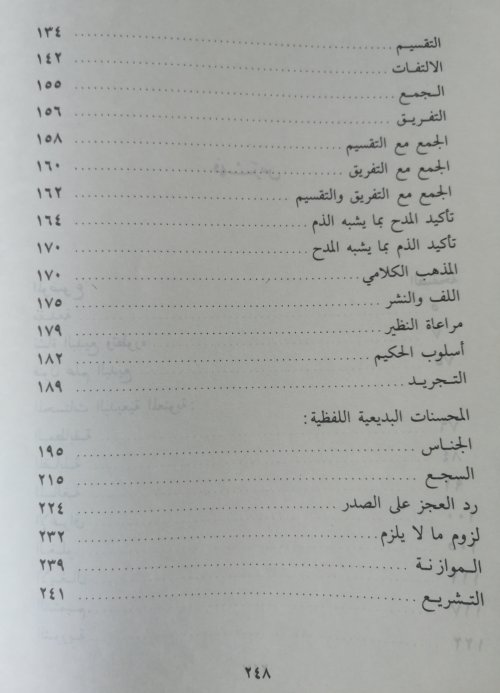 التقسيـم ........ ١٣٤
الالتفات ........ ١٤٢
الـجمـع ........ ١٥٥
التفـريـق ........ ١٥٦
الجمع مع التقسيم ........ ١٥٨
الجمع مع التفريق ........ ١٦٠
الجمع مع التفريق والتقسيم ........ ١٦٢
تأكيد المدح بما يشبه الذم ........ ١٦٤
تأكيد الذم بما يشبه المدح ........ ١٧٠
المذهب الكلامي ........ ١٧٠
اللف والنشر ........ ١٧٥
مراعاة النظير ........ ١٧٩
أسلوب الحكيم ........ ١٨٢
التـجريـد ........ ١٨٩
المحسنات البديعية اللفظية:
الجناس ........ ١٩٥
السجـع ........ ٢١٥
رد العجز على الصدر ........ ٢٢٤
لزوم ما لا يلزم ........ ٢٣٢
الـموازنـة ........ ٢٣٩
التـشريـع ........ ٢٤١
٢٤٨